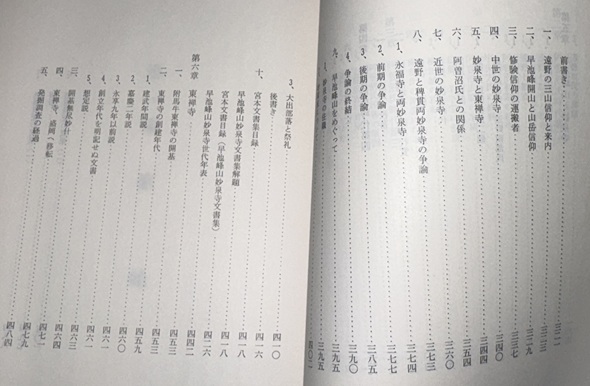 前書き
一、遠野の三山信仰と来内
二、早池峰開山と山岳信仰
三、修験信仰の運搬者 三三七
四、中世の妙泉寺 三四四
五、妙泉寺と東禅寺 三五四
六、阿曽沼氏との関係 三六〇
七、近世の妙泉寺 三七三
八、遠野と稗貫両妙泉寺の争論 三七七
1、永福寺と両妙泉寺 三七七
2、前期の争論 三八五
3、後期の争論 三九〇
4、争論の終結 三九五
九、早池峰山をめぐって 三九五
3、大出部落と祭礼 四一〇
後書き 四一六
十、宮本文書集目録 四一八
早池峰山妙泉寺文書集解題 四一八
宮本文書目録（早池峰山妙泉寺文書集）
早池峰山妙泉寺世代年表 四二六
第六章 東禅寺 四四二
一、附馬牛東禅寺の開基 四五三
二、東禅寺の創建年代
1、建武年間説
2、嘉慶二年説 四五九
3、永享九年以前説 四六〇
4、創立年代を明記せぬ文書 四六一
5、想定説 四六三
三、開基無尽妙什 四七一
四、東禅寺、盛岡へ移転 四七九
五、発掘調査の経過 四八四